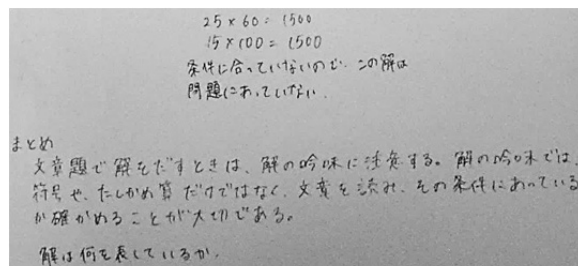 25×60=1500
15×100=1500
条件に合っていないので、この解は
問題にあっていない.
まとめ
文章題で解をだすときは、解の吟味に注意する。解の吟味では、
符号や、たしかめ算だけではなく、文章を読み、その条件にあっている
か確かめることが大切である。
解は何を表しているか.